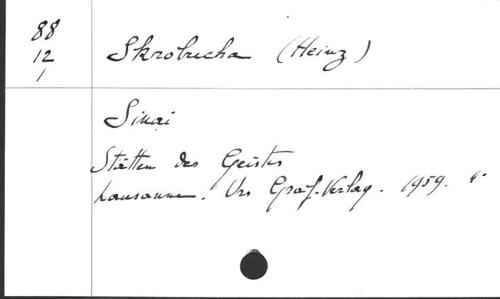 88
12
1
Skrobucha (Heinz)
Sinai
Stätten des Geistes
Lausanne. Urs Graf-Verlag. 1959. 4°